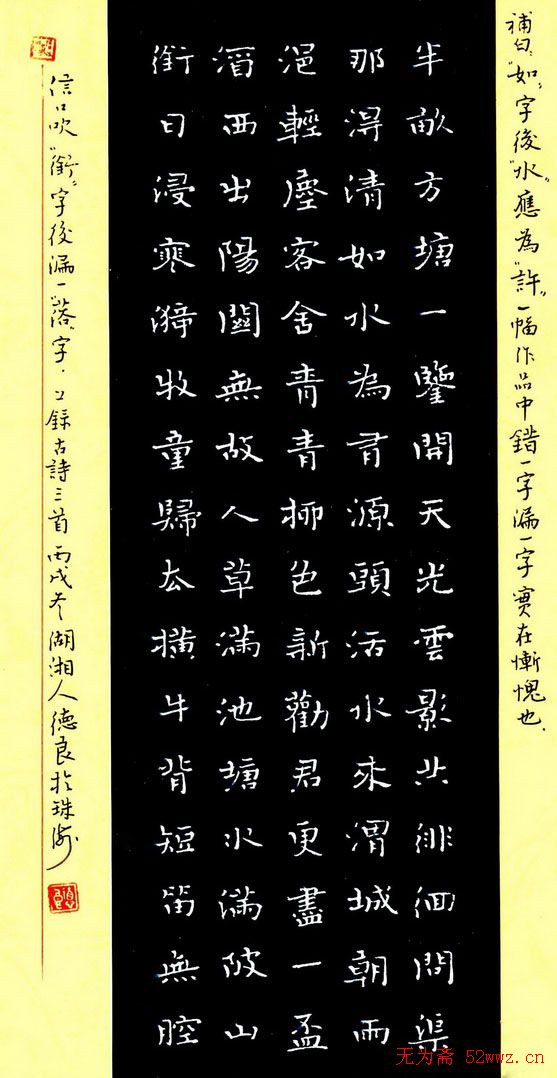 補白："如"字後"水"應為"許"一幅作品中錯一字漏一字實在慚愧也.
半畝方塘一鑒開天光雲影共徘徊問渠
那得清如水為有源頭活水來渭城朝雨
浥輕塵客舍青青柳色新勸君更盡一盃
酒西出陽關無故人草滿池塘水滿陂山
銜日浸寒漪牧童歸去橫牛背短笛無腔
信口吹"銜"字後漏一"落"字．上錄古詩三首丙戌冬湖湘人德良於珠海
无为斋 52wwz.cn